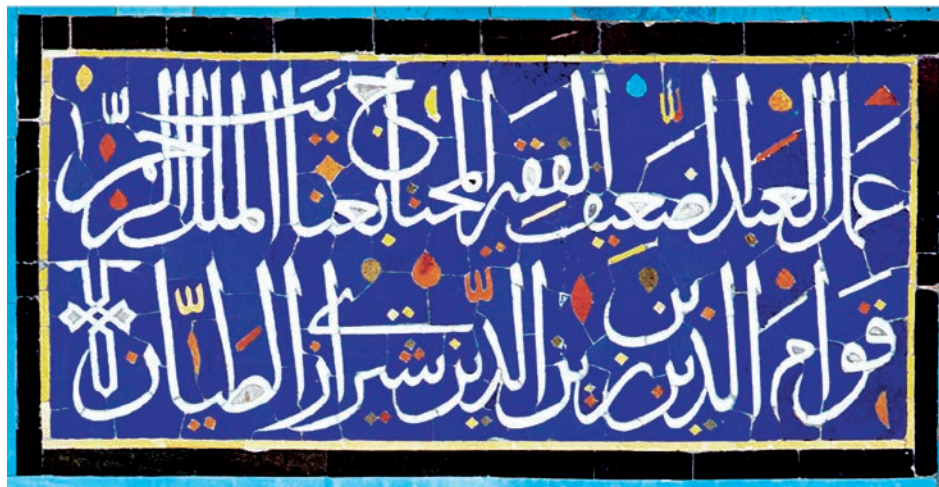 عمل العبد الضعیف الفقیر المحتاج بعنایت الملک الرحمن
قوام الدین بن زین الدین شیرازی الطیان